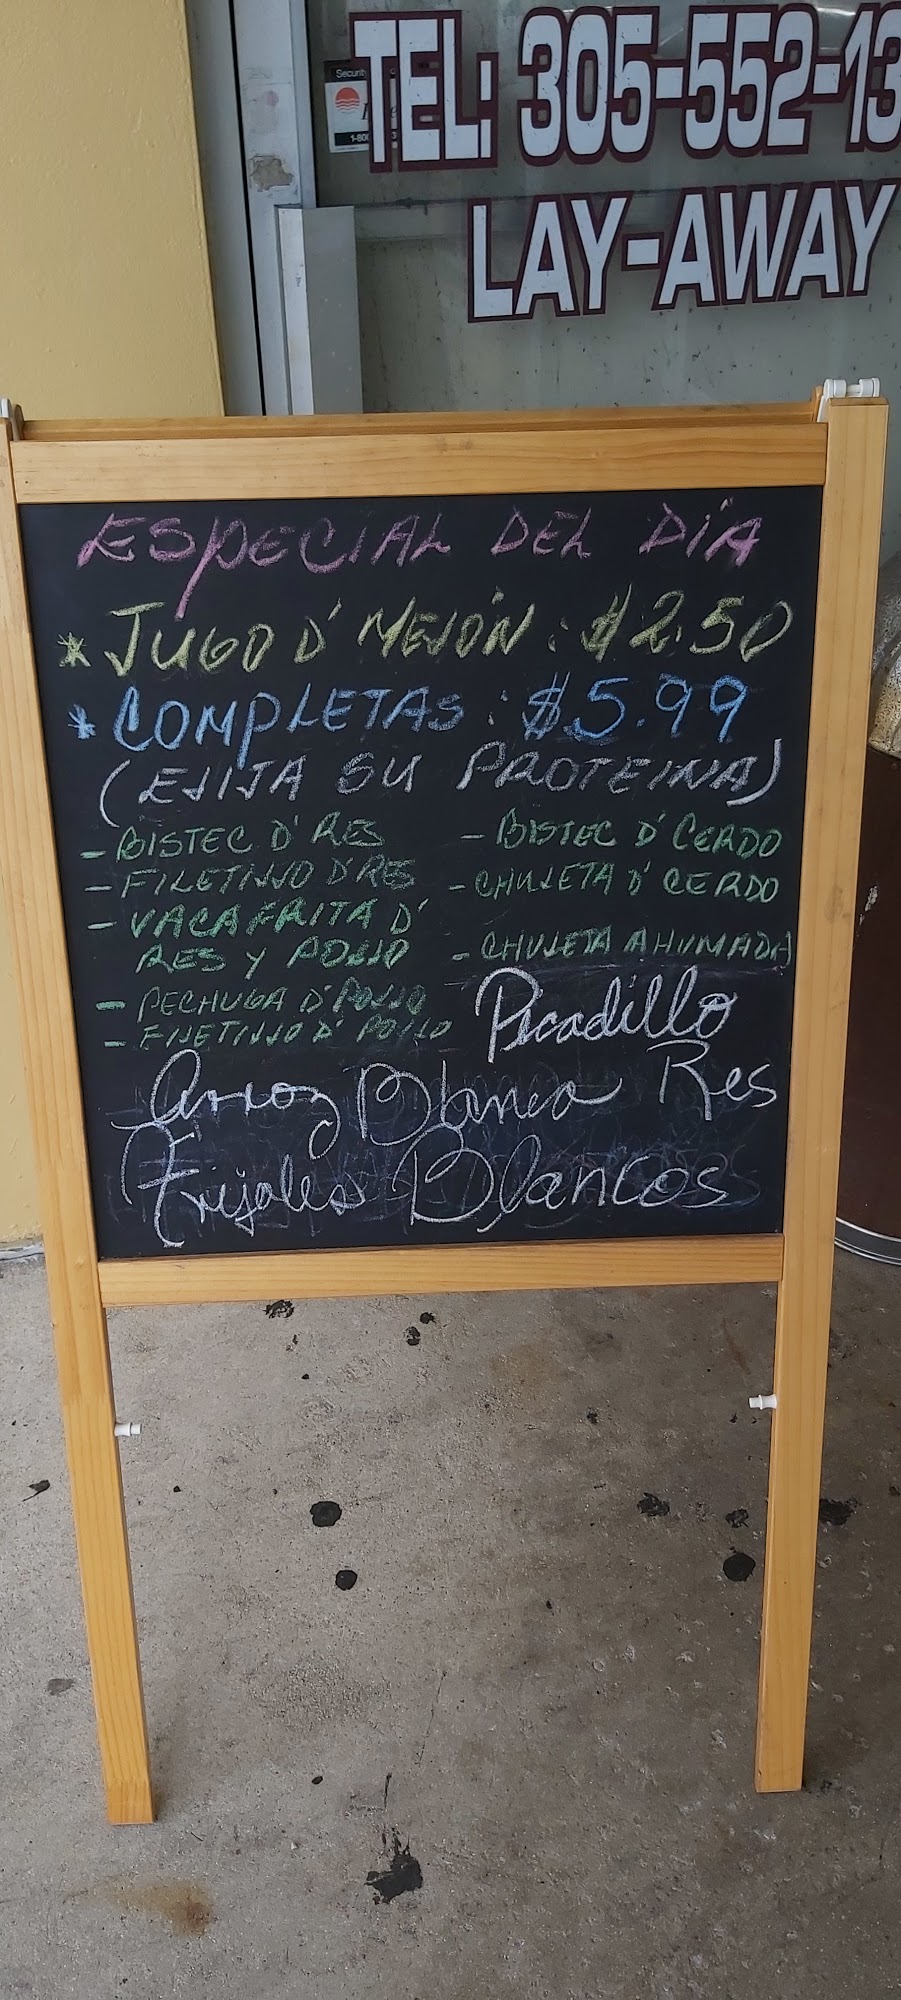 Security
TEL: 305-552-13
1-800
LAY-AWAY
ESPECIAL DEL DÍA
* JUGO D' MELÓN : $2.50
* COMPLETAS : $5.99
(ELIJA SU PROTEINA)
- BISTEC D' RES
- FILETILLO D' RES
- VACA FRITA D'
RES Y POLLO
- PECHUGA D' POLLO
- FILETILLO D' POLLO
- BISTEC D' CERDO
- CHULETA D' CERDO
- CHULETA AHUMADA
Picadillo
Res
Arroz Blanco
Frijoles Blancos